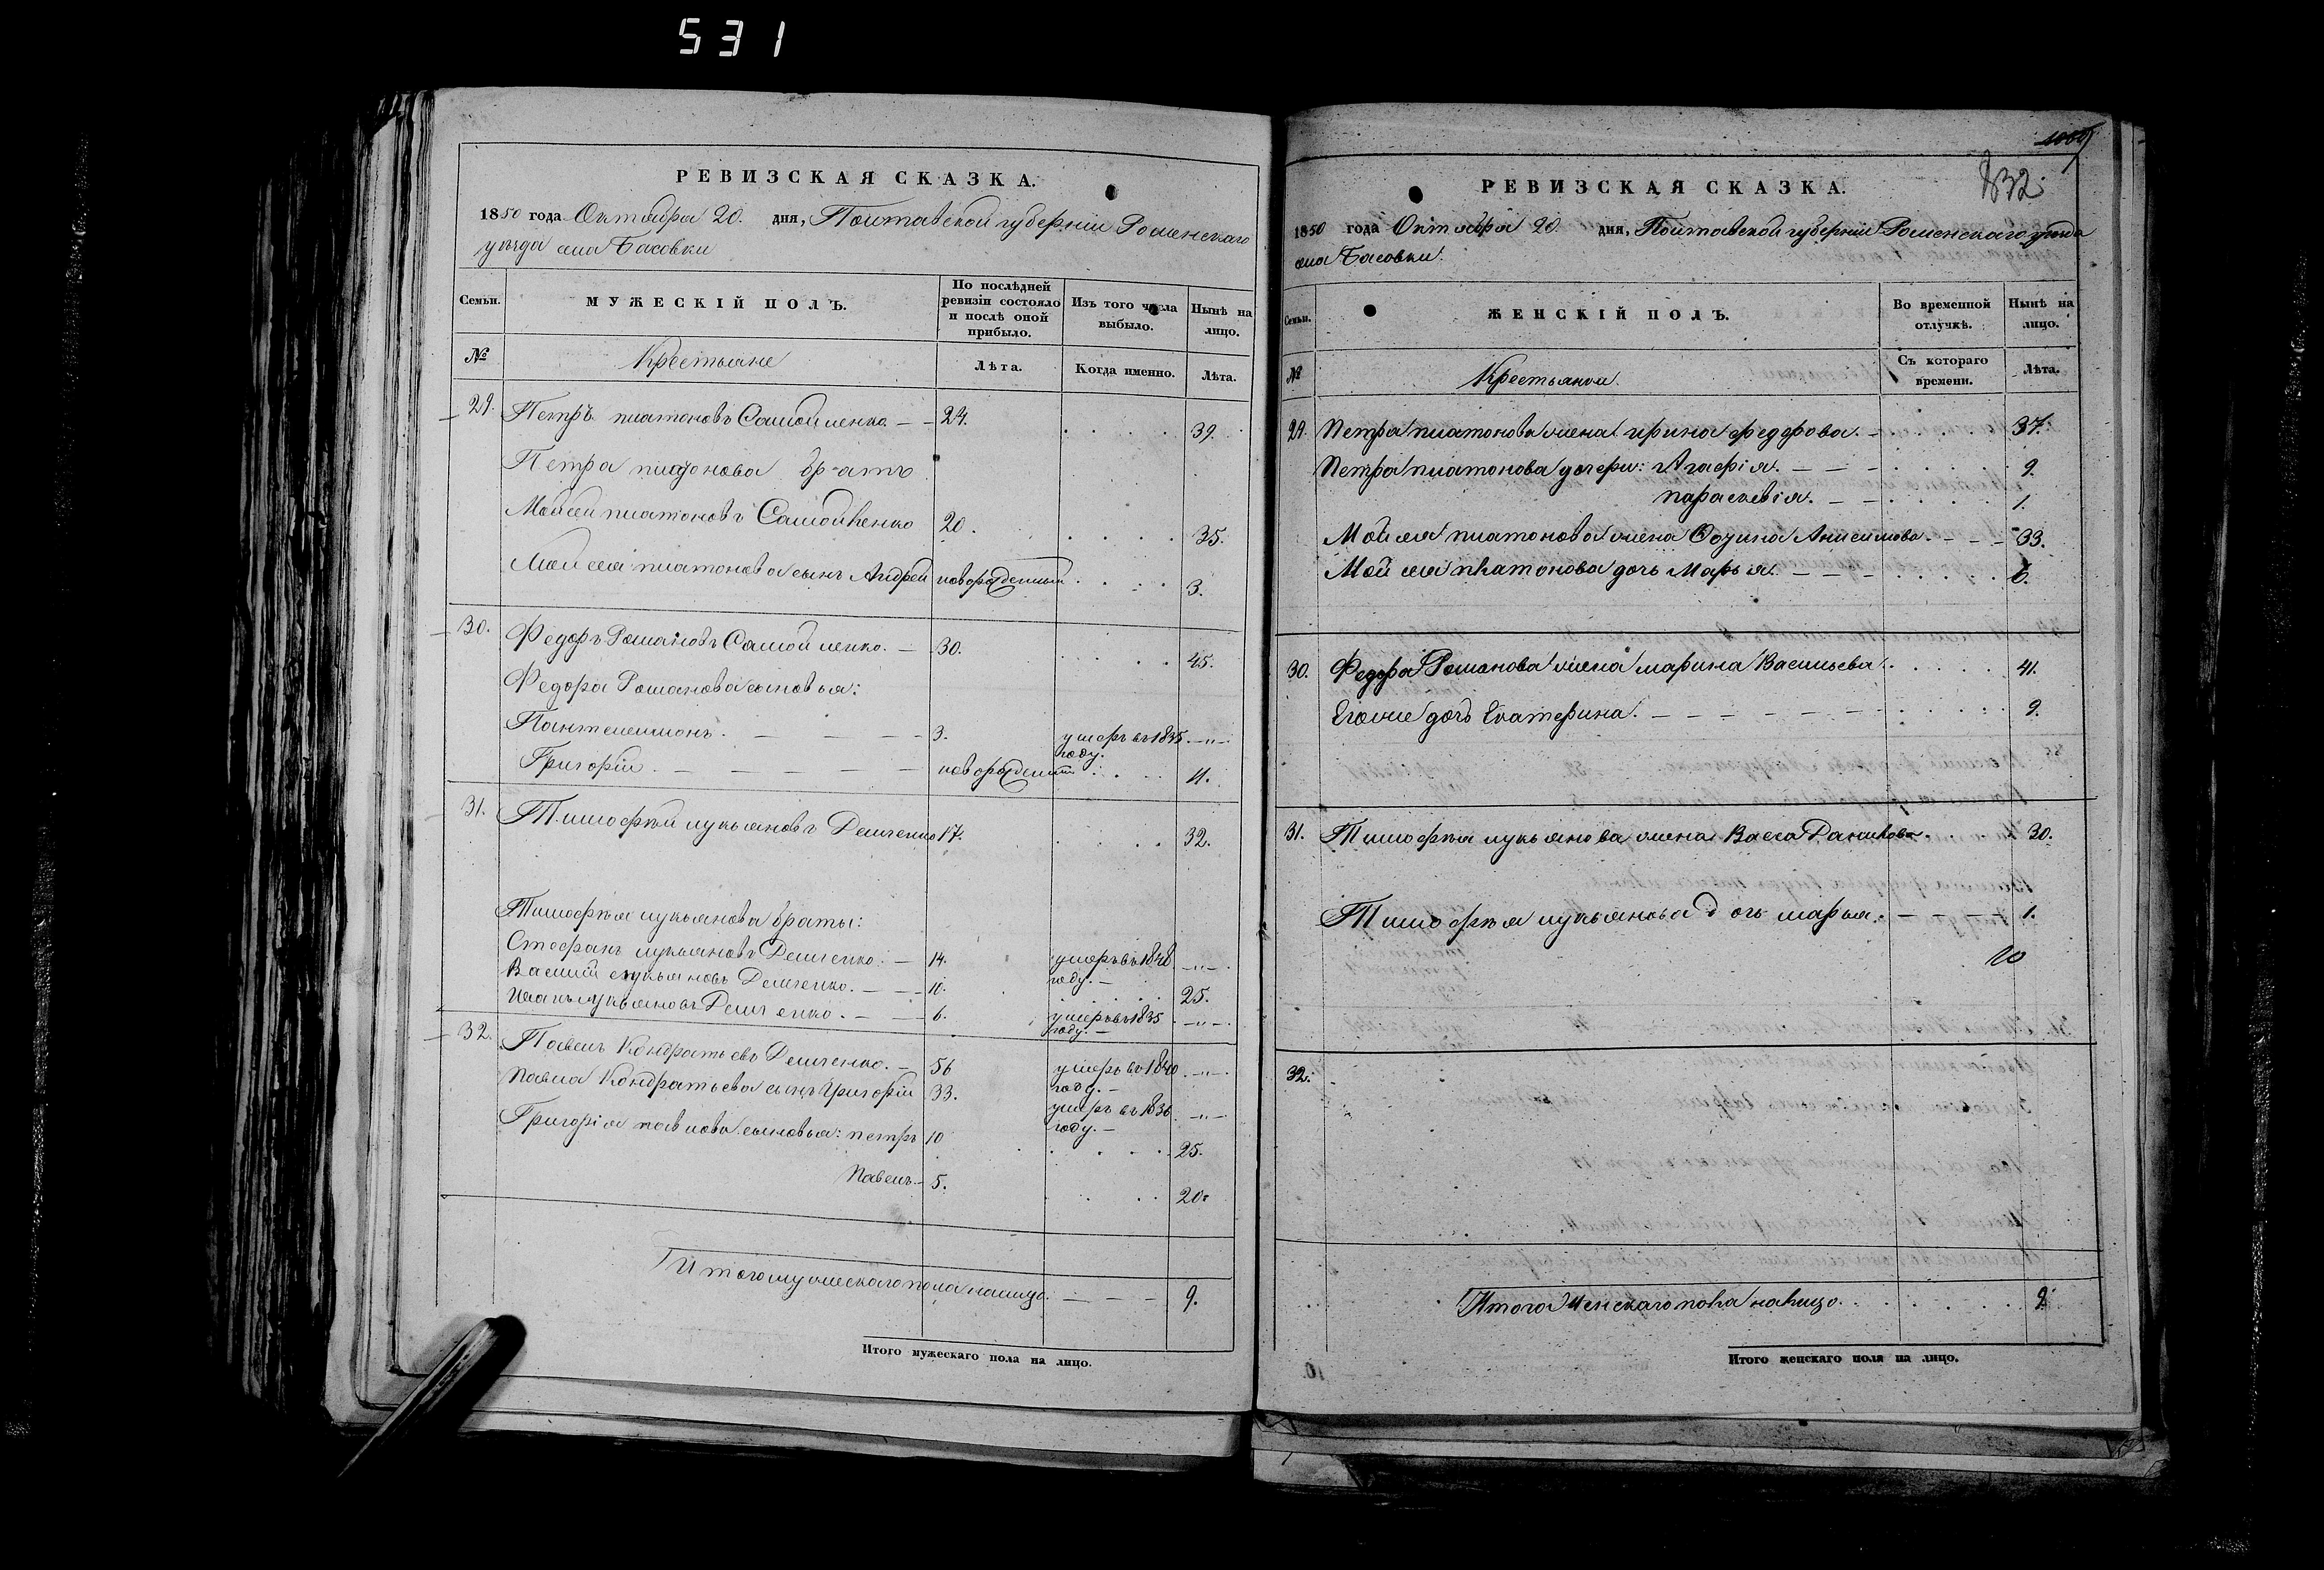 531
РЕВИЗСКАЯ СКАЗКА.
1850 года Октября 20. дня, Полтавской губерніи Роменскаго
уѣзда села Басовки
Семьи. МУЖЕСКІЙ ПОЛЪ. По послѣдней ревизіи состояло и послѣ оной прибыло. Изъ того числа выбыло. Нынѣ на лицо.
№ Крестьяне Лѣта. Когда именно. Лѣта.
29. Петръ платоновъ Самойленко 24. 39.
Петра платонова братъ
Мойсей платоновъ Самойленко 20. 35.
Мойсея платонова сынъ Андрей новорожденный 3.
30. Федоръ Романовъ Самойленко. 30. 45.
Федора Романова сыновья:
Пантелеимонъ. 3. умеръ въ 1835 году. "
Григорій. новорожденный 11.
31. Тимофѣй лукьяновъ Демченко 17. 32.
Тимофѣя лукьянова браты:
Стефанъ лукьяновъ Демченко. 14. умеръ въ 1848 году. "
Василій лукьяновъ Демченко. 10. 25.
Иванъ лукьяновъ Демченко. 6. умеръ въ 1835 году. "
32. Павелъ Кондратьевъ Демченко. 56 умеръ въ 1840 году. "
Павла Кондратьева сынъ Григорій 33. умеръ въ 1836 году. "
Григорія павлова сыновья: петръ 10 25.
Павелъ. 5. 20.
Итого мужескаго пола налицо. 9.
Итого мужескаго пола на лицо.
832
РЕВИЗСКАЯ СКАЗКА.
1850 года Октября 20 дня, Полтавской губерніи Роменскаго уѣзда
села Басовки.
Семьи. ЖЕНСКІЙ ПОЛЪ. Во временной отлучкѣ. Нынѣ на лицо.
№ Крестьянки. Съ котораго времени. Лѣта.
29. Петра платонова жена ирина федорова. 37.
Петра платонова дочери: Агафія. 9.
параскевія. 1.
Мойсея платонова жена Анисимова. 33.
Мойсея платонова дочь Марья. 6.
30. Федора Романова жена марина Васильева. 41.
Егоже дочь Екатерина. 9.
31. Тимофѣя лукьянова жена Васса Данилова. 30.
Тимофѣя лукьянова дочь марья. 1.
32.
Итого женскаго пола налицо. 9.
Итого женскаго пола на лицо.